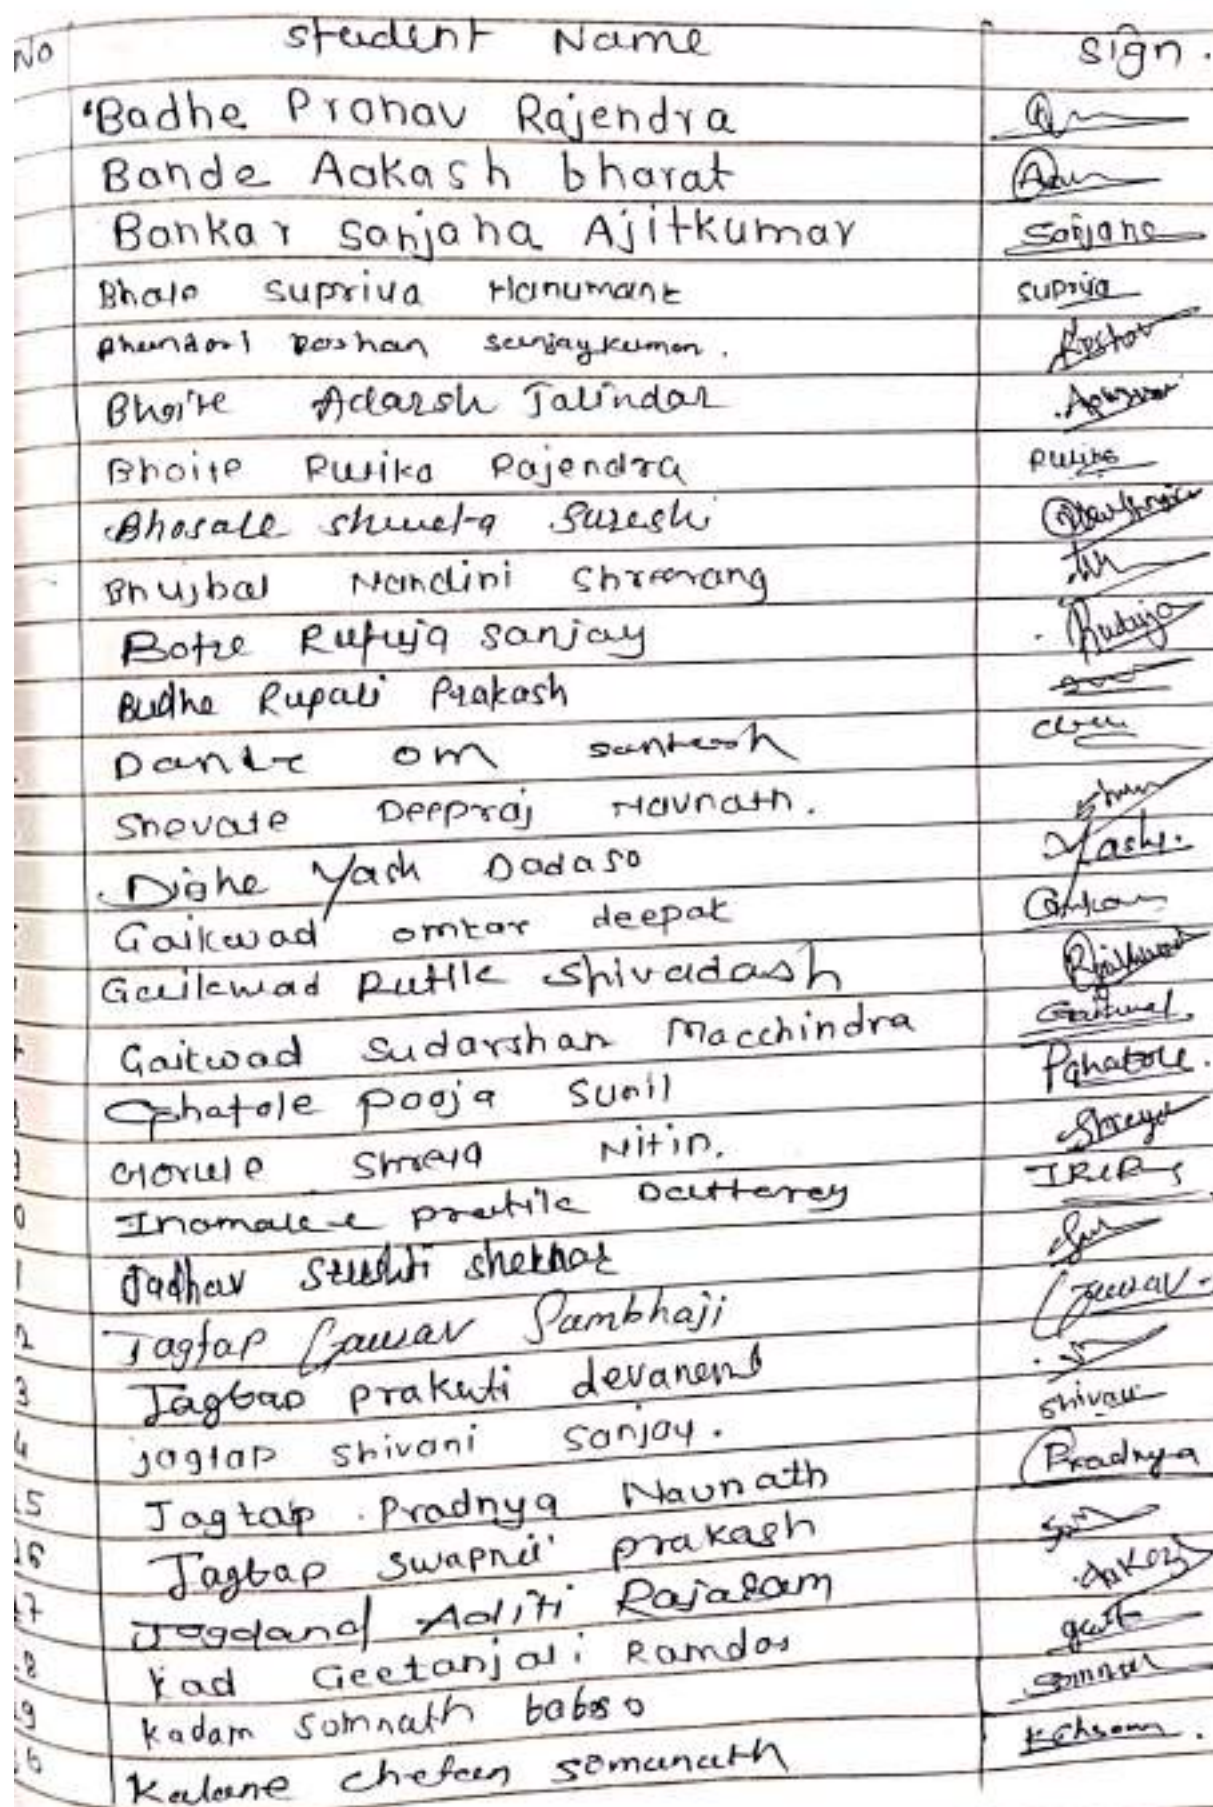 No Student Name Sign.
Badhe Pranav Rajendra
Bande Aakash bharat
Bankar Sanjana Ajitkumar Sanjana
Bhale Supriya Hanumant Supriya
Bhandari Roshan Sanjaykumar. Roshan
Bhoite Adarsh Jalindar
Bhoite Rutika Rajendra Rutika
Bhosale Shweta Suresh
Bhujbal Nandini Shreerang
Botre Rutuja Sanjay Rutuja
Budhe Rupali Prakash
Dante om santosh
Shevate Deepraj Navnath.
Dighe Yash Dadaso Yash.
Gaikwad omkar deepak Omkar
Gaikwad Rutik Shivadash RGaikwad
Gaikwad Sudarshan Macchindra Gaikwad.
Ghatole Pooja Sunil PGhatole.
Gorule Shreya Nitin. Shreya
0 Inamake Pratik Dattatrey
1 Jadhav Srushti Shekhar
2 Jagtap Gaurav Sambhaji Gaurav
3 Jagtap Prakruti
4 jagtap Shivani Sanjay. Shivani
25 Jagtap Pradnya Navnath Pradnya
26 Jagtap Swapnil prakash
27 Jagdand Aditi Rajaram
28 Kad Geetanjali Ramdas
29 Kadam Somnath babaso Somnath
Kalane Chetan Somanath